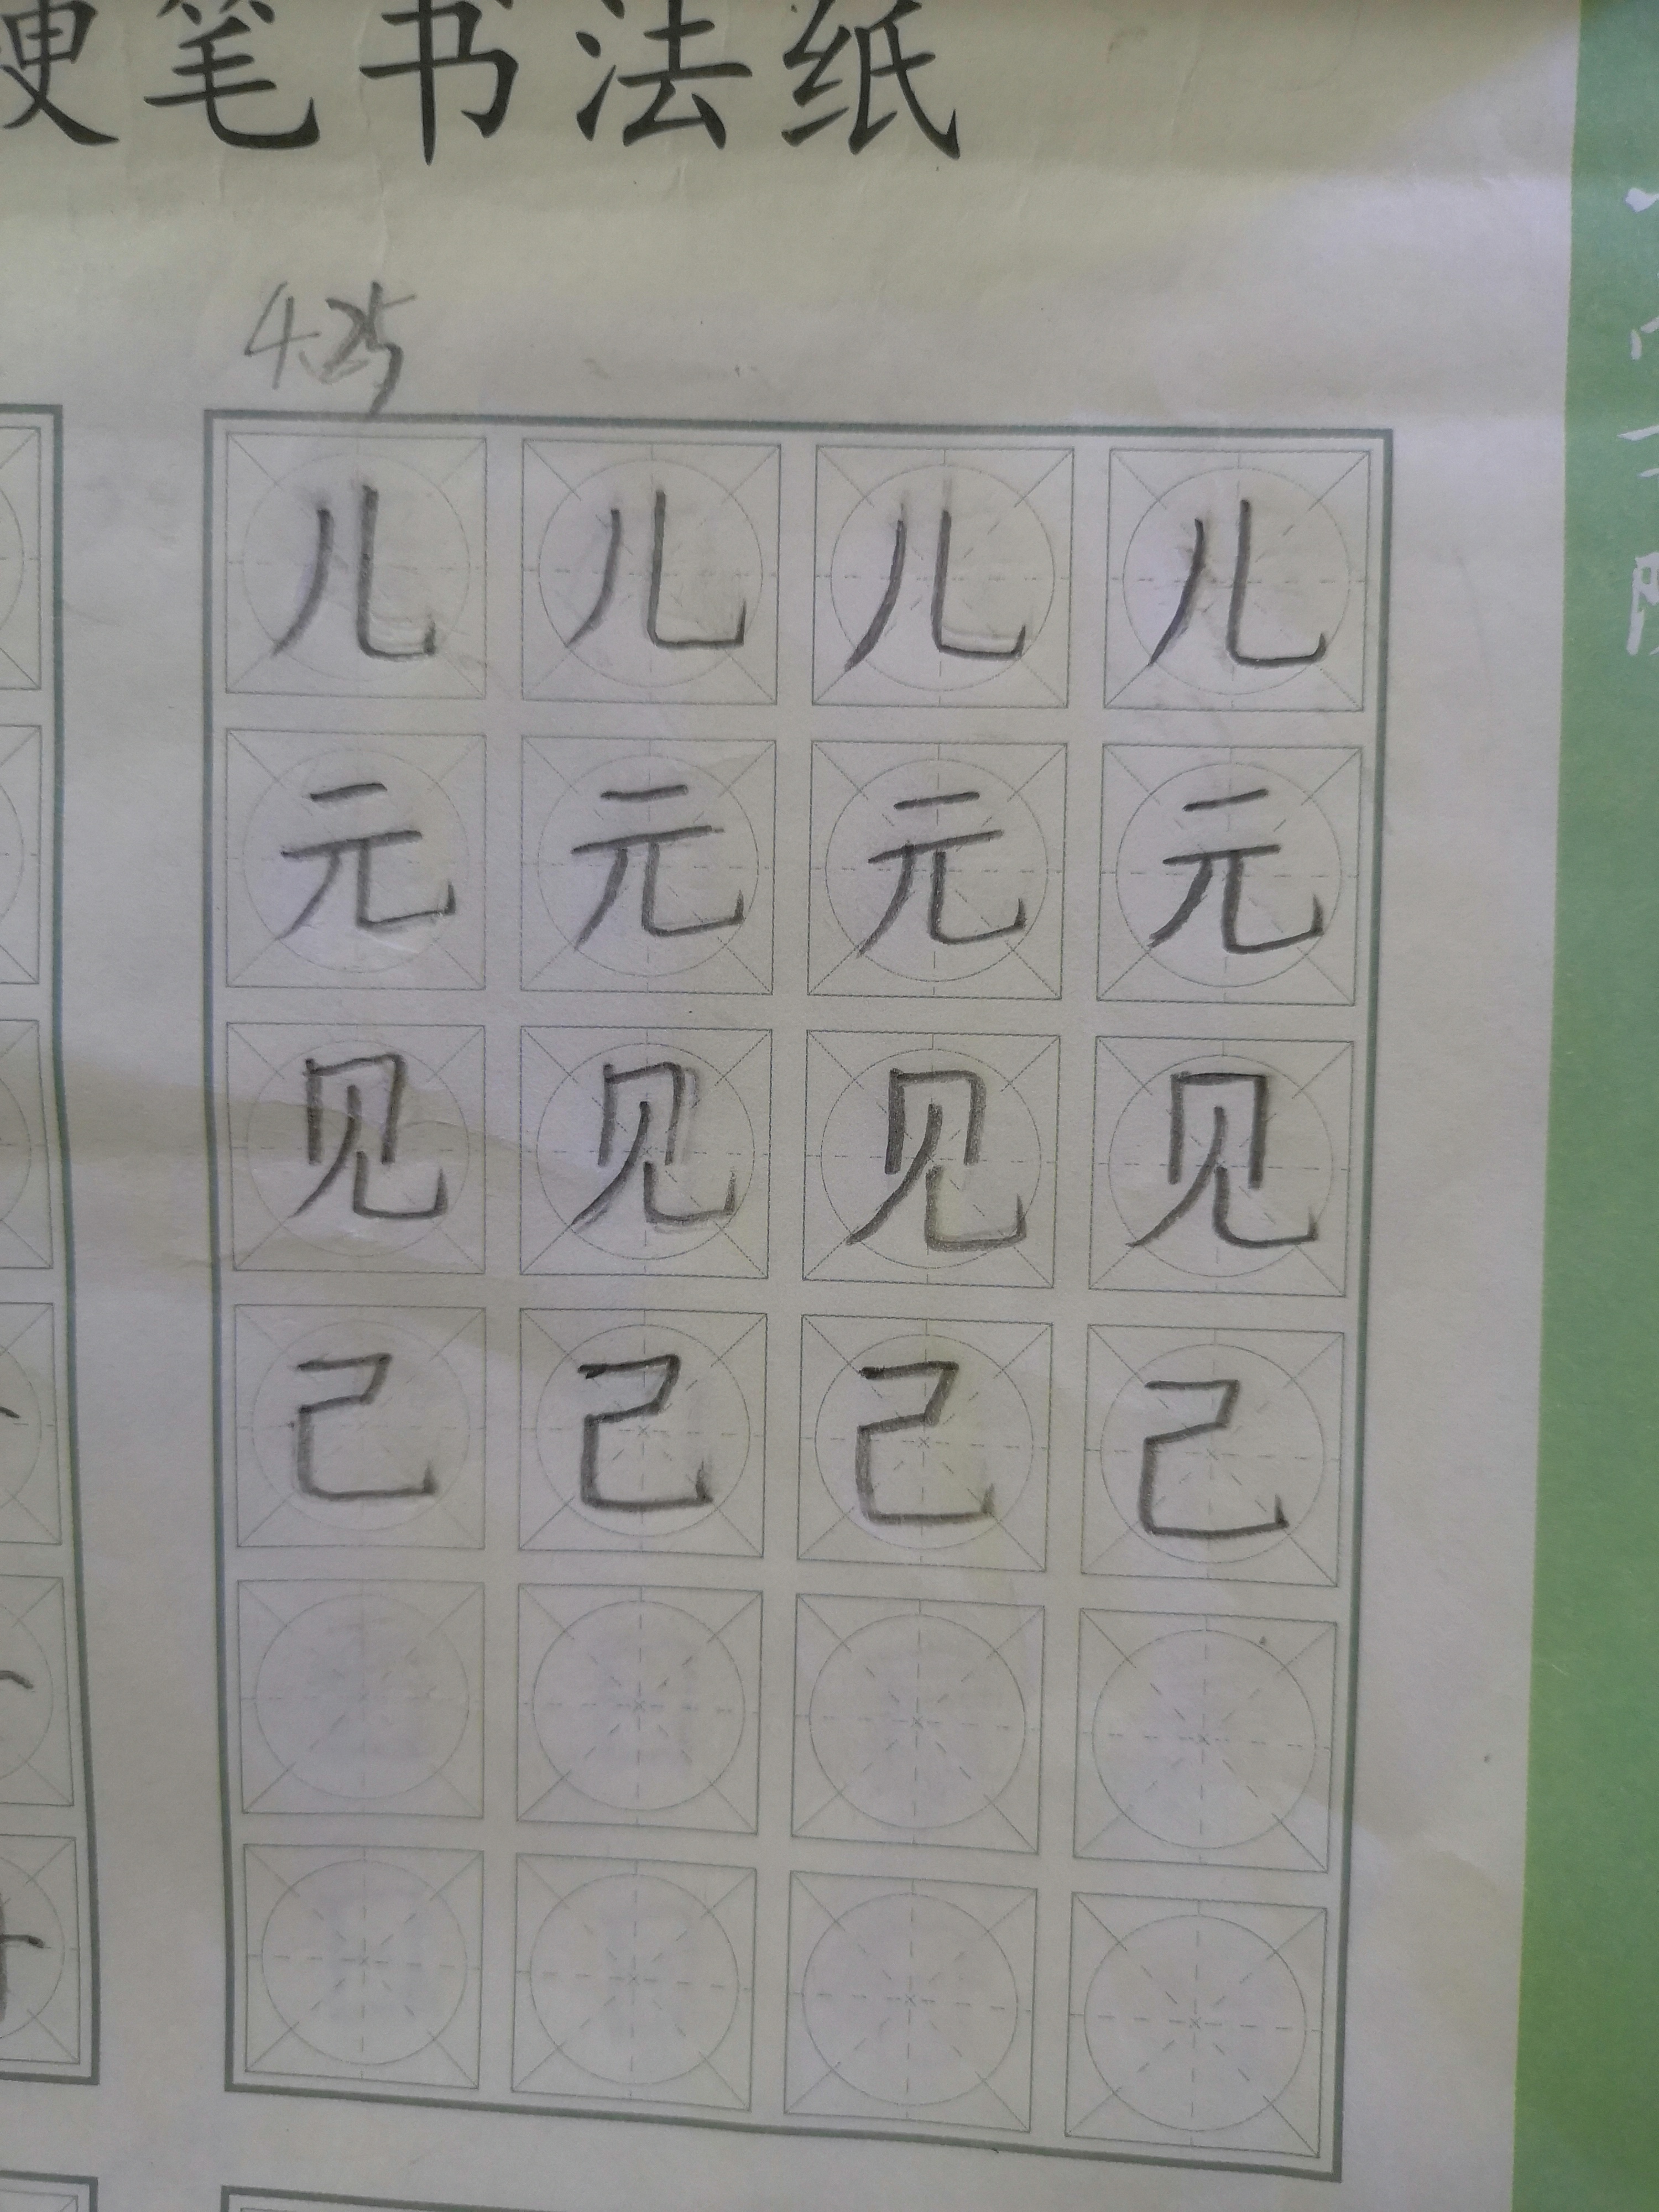 硬笔书法纸
4.25
儿儿儿儿
元元元元
见见见见
己己己己